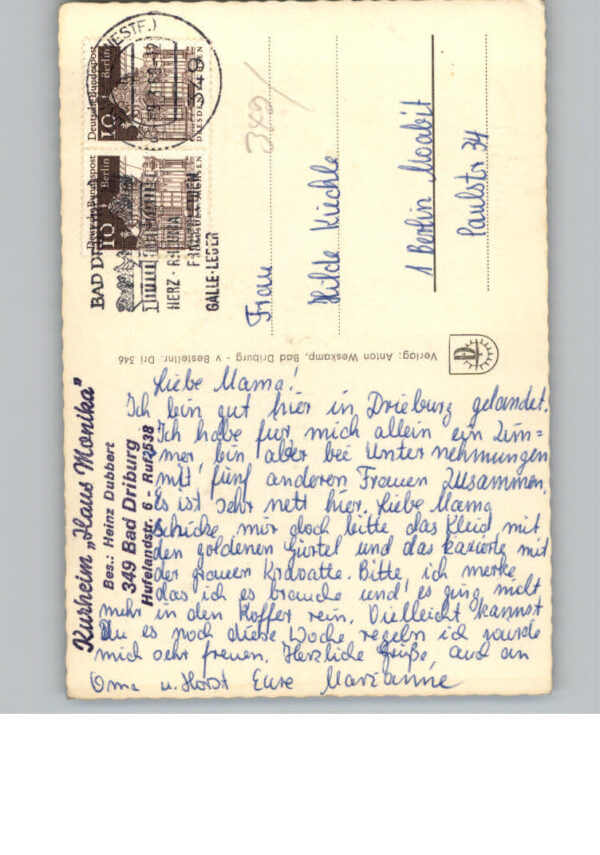 (WESTF.)
349
Deutsche Bundespost
Berlin
10
DRESDEN SACHSEN
Deutsche Bundespost
Berlin
10
BAD DRI
HERZ - RHEUMA
FRAUEN
GALLE-LEBER
349/
Frau
Hilde Küchle
1 Berlin Moabit
Paulstr 34
Verlag: Anton Weskamp, Bad Driburg - v Bestellnr. Dri 346
Kurheim „Haus Monika"
Bes.: Heinz Dubbert
349 Bad Driburg
Hufelandstr. 6 - Ruf 2538
Liebe Mama!
Ich bin gut hier in Drieburg gelandet.
Ich habe für mich allein ein Zim=
mer, bin aber bei Unternehmungen
mit fünf anderen Frauen zusammen.
Es ist sehr nett hier. Liebe Mama
schicke mir doch bitte das Kleid mit
den goldenen Gürtel und das karierte mit
der grauen Kravatte. Bitte, ich merke
das ich es brauche und es ging nicht
mehr in den Koffer rein. Vielleicht kannst
Du es noch diese Woche regeln ich würde
mich sehr freuen. Herzliche Grüße auch an
Oma u. Horst Eure Marianne